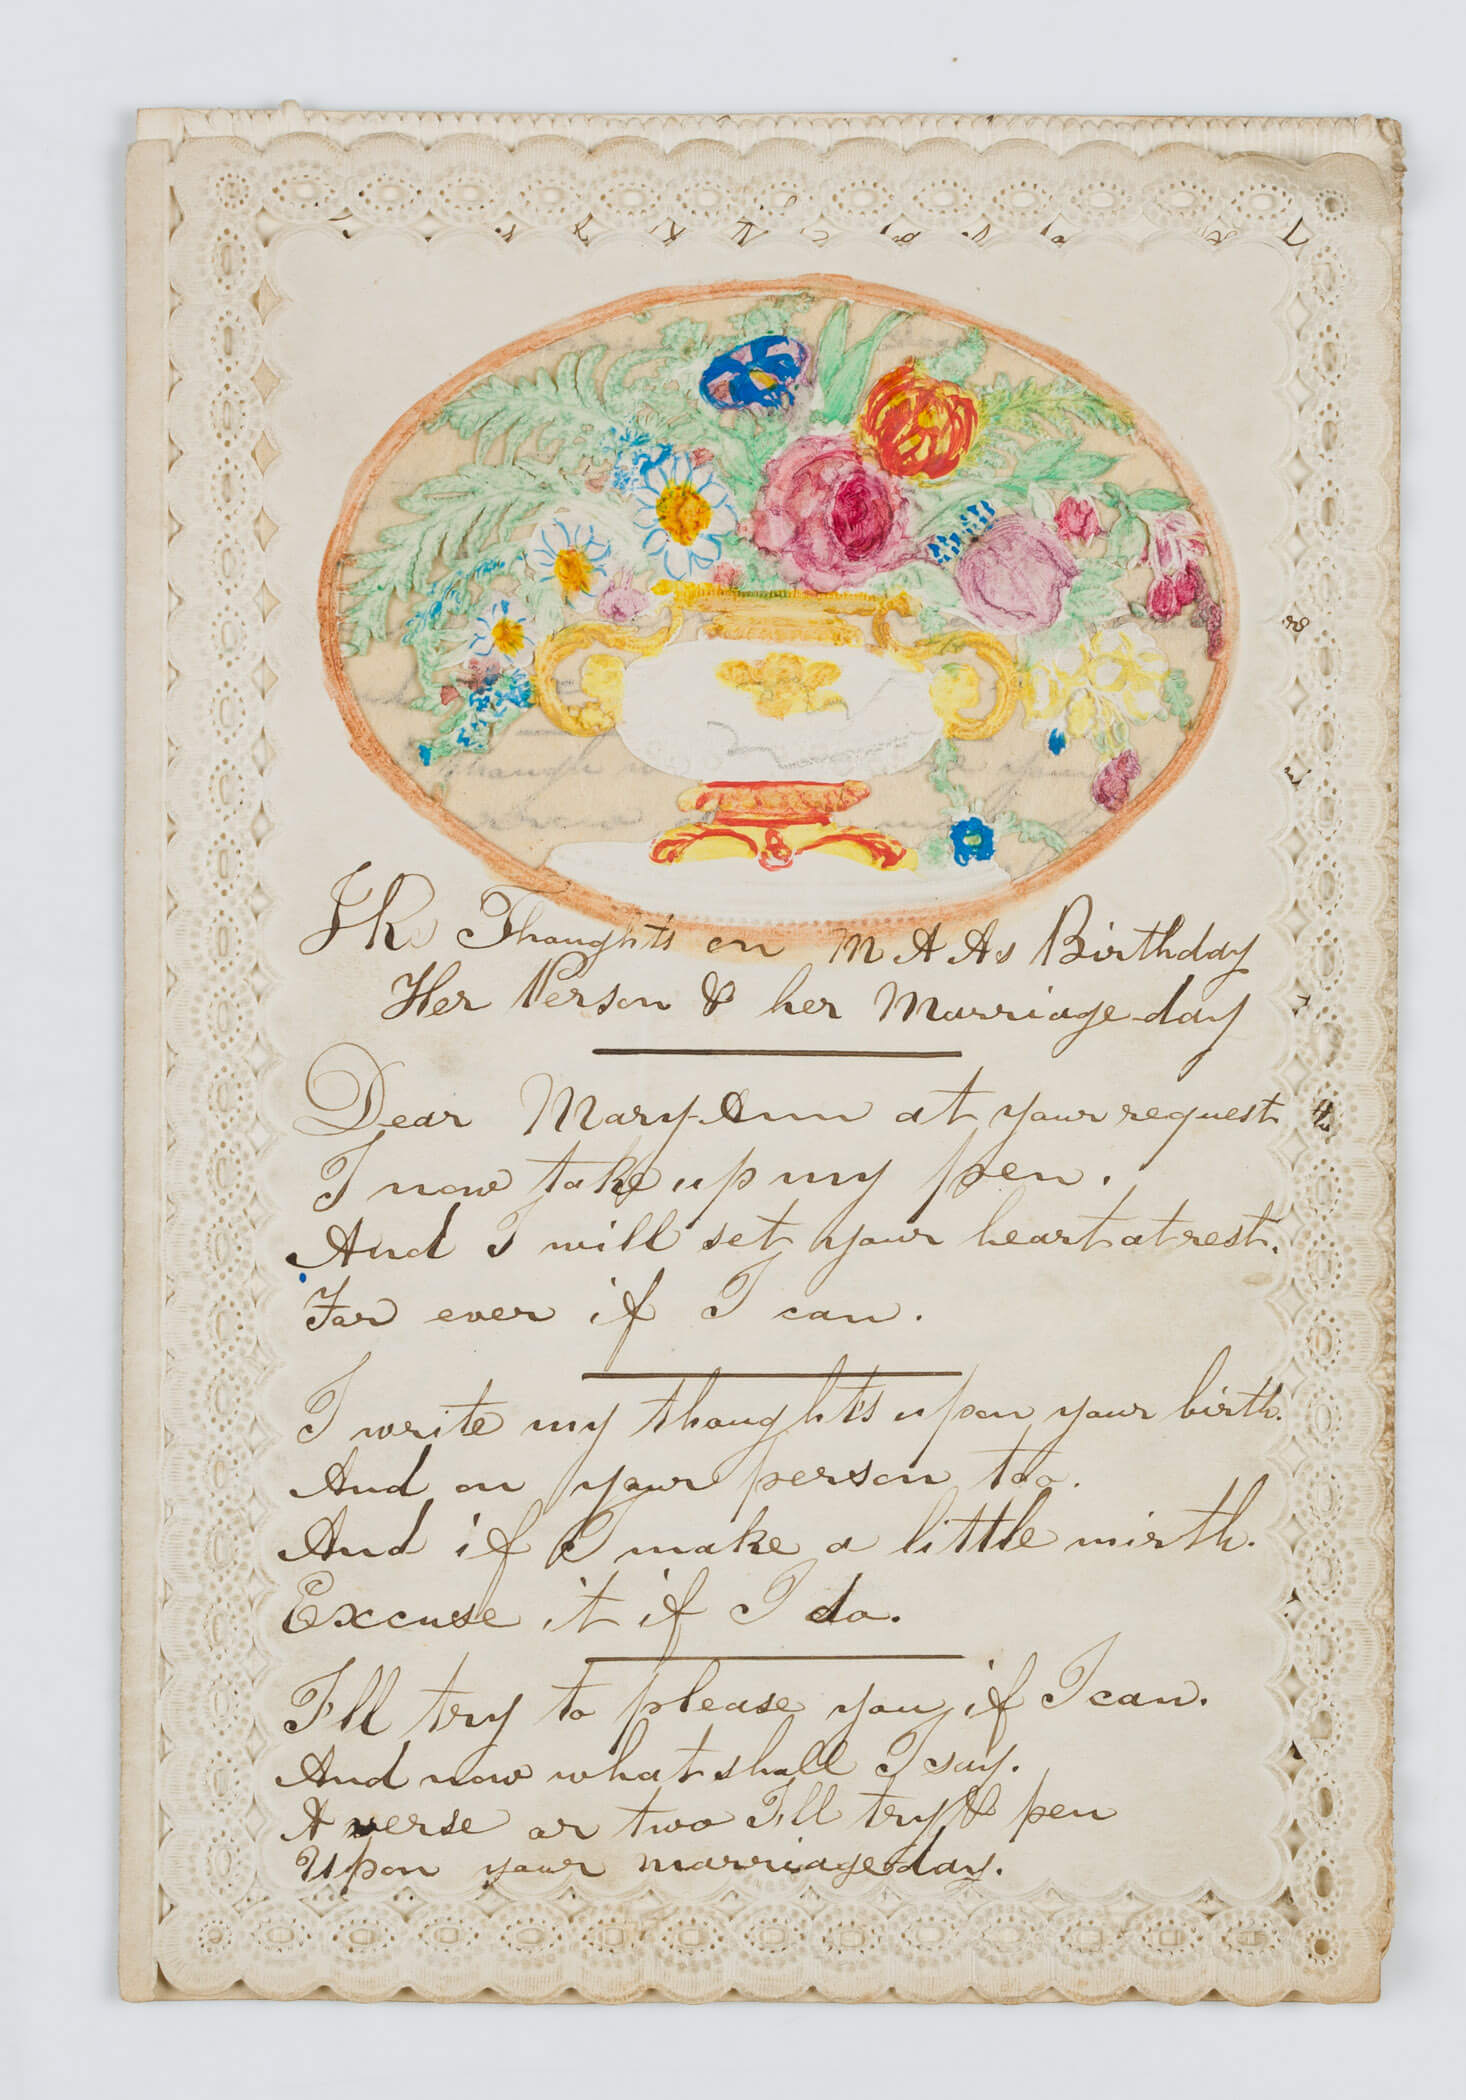 JKs Thoughts on M A As Birthday
Her Person & her Marriage day
Dear Mary-Ann at your request
I now take up my pen.
And I will set your heart at rest.
For ever if I can.
I write my thoughts upon your birth.
And on your person too.
And if I make a little mirth.
Excuse it if I do.
I'll try to please you, if I can.
And now what shall I say.
A verse or two I'll try & pen
Upon your marriage day.